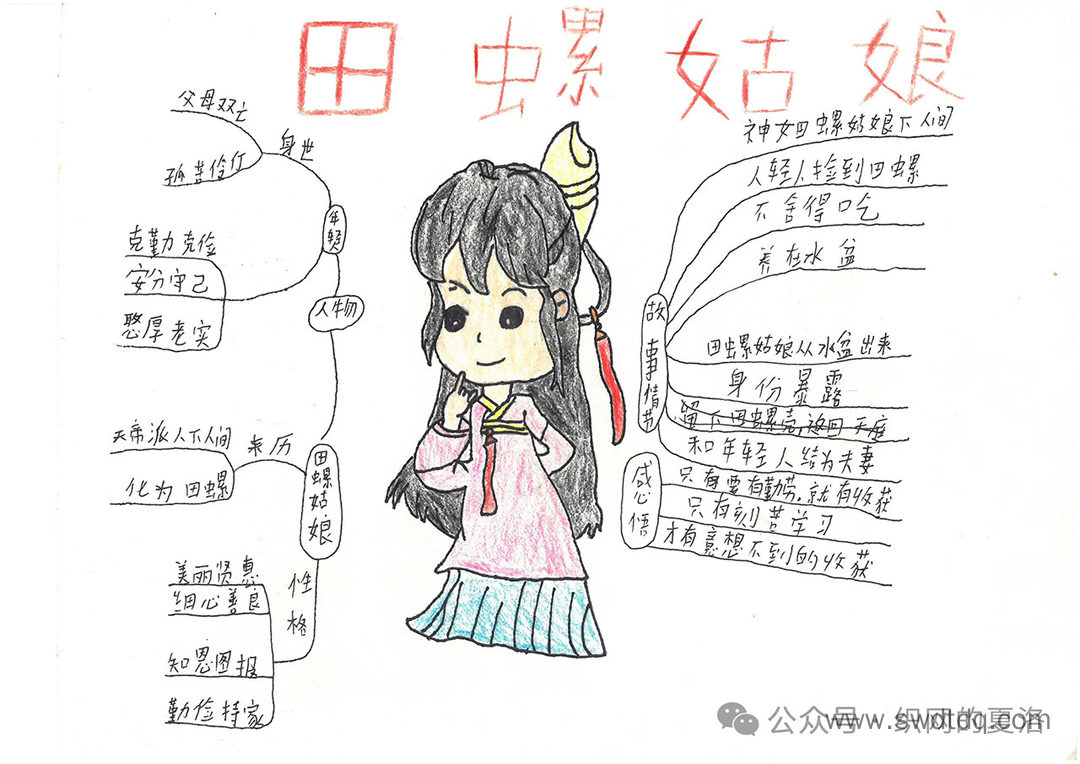 田螺姑娘
父母双亡
孤苦伶仃
身世
年轻人
克勤克俭
安分守己
憨厚老实
人物
天帝派人下人间
化为田螺
来历
田螺姑娘
美丽贤惠
细心善良
知恩图报
勤俭持家
性格
神女田螺姑娘下人间
人轻人捡到田螺
不舍得吃
养在水盆
故事情节
田螺姑娘从水盆出来
身份暴露
留下田螺壳,返回天庭
和年轻人结为夫妻
感悟
只有要有勤劳,就有收获
只有刻苦学习
才有意想不到的收获
公众号 织网的夏洛
www.swdtdq.com